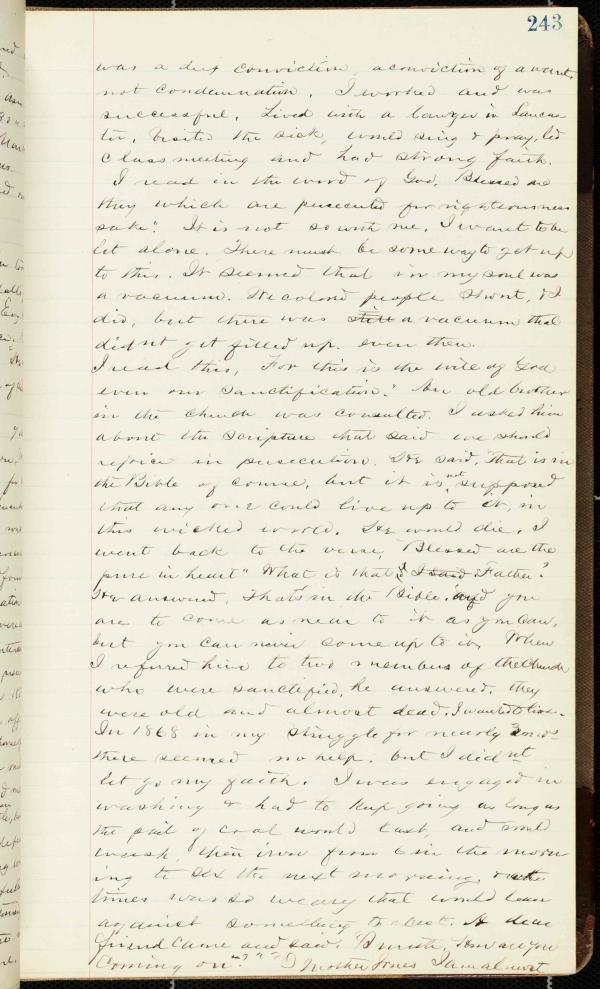 243
was a deep conviction, a conviction of a want,
not condemnation. I worked and was
successful. Lived with a lawyer in Lancas-
ter, Visited the sick, would sing & pray, led
Class meeting and had strong faith.
I read in the word of God, Blessed are
they which are persecuted for righteousness
sake." It is not so with me. I want to be
let alone. There must be some way to get up
to this. It seemed that in my soul was
a vacuum. We colored people shout, & I
did, but there was still a vacuum that
did nt get filled up. even then.
I read this, For this is the will of God
even our Sanctification." An old brother
in the church was consulted. I asked him
about the scripture that said we should
rejoice in persecution. He said, "That is in
the Bible of course, but it is not supposed
that any one could live up to it, in
this wicked world. He would die. I
went back to the verse, "Blessed are the
pure in heart" What is that I said Father?
He answered, That's in the Bible, and you
are to come as near to it as you can,
but you can never come up to it. When
I referred him to two members of the church
who were sanctified, he answered, they
were old and almost dead. I wanted to live.
In 1868 in my struggle for nearly 3 mos
there seemed no help. but I did nt
let go my faith. I was engaged in
washing & had to keep going as long as
the pail of coal would last, and would
wash, then iron from 6 in the morn
ing to six the next morning, &
times was so weary that would lean
against something to rest. A dear
friend came and said. "B Smith, How are you
Coming on"? "O Mother Jones I am almost